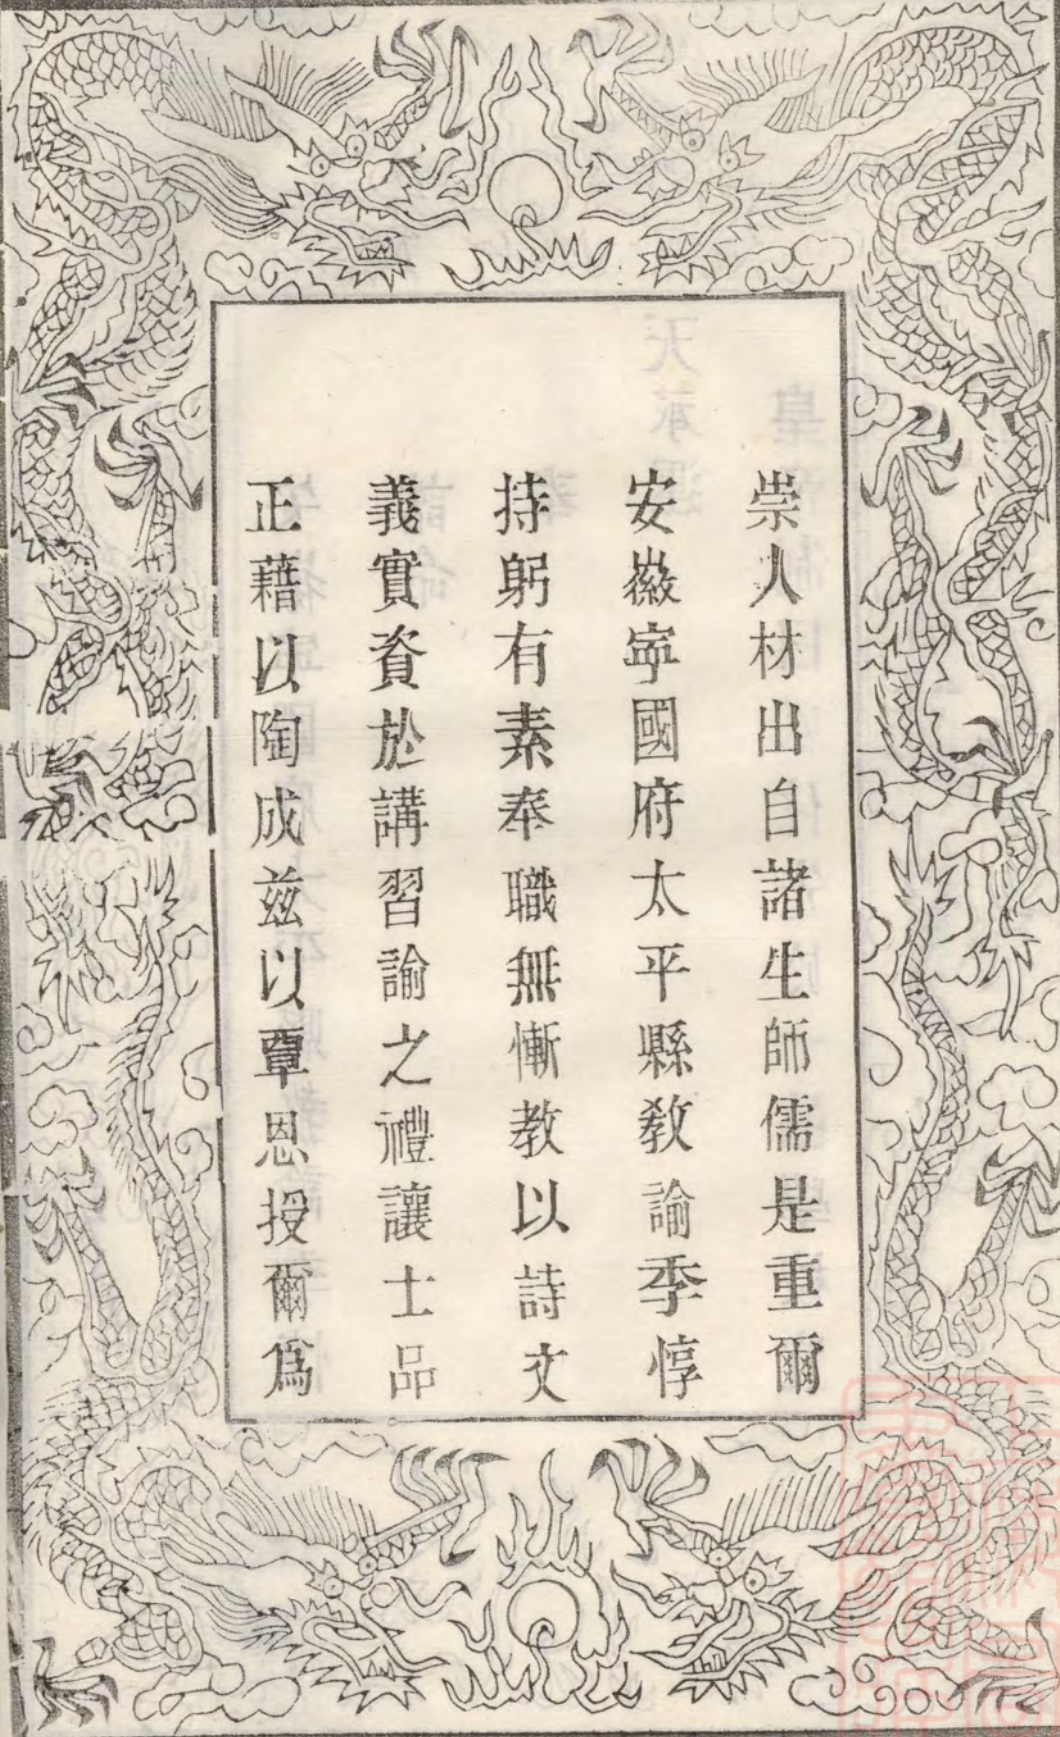 崇人材出自諸生師儒是重爾
安徽寧國府太平縣教諭季惇
持躬有素奉職無慚教以詩文
義實資於講習諭之禮讓士品
正藉以陶成茲以覃恩授爾爲